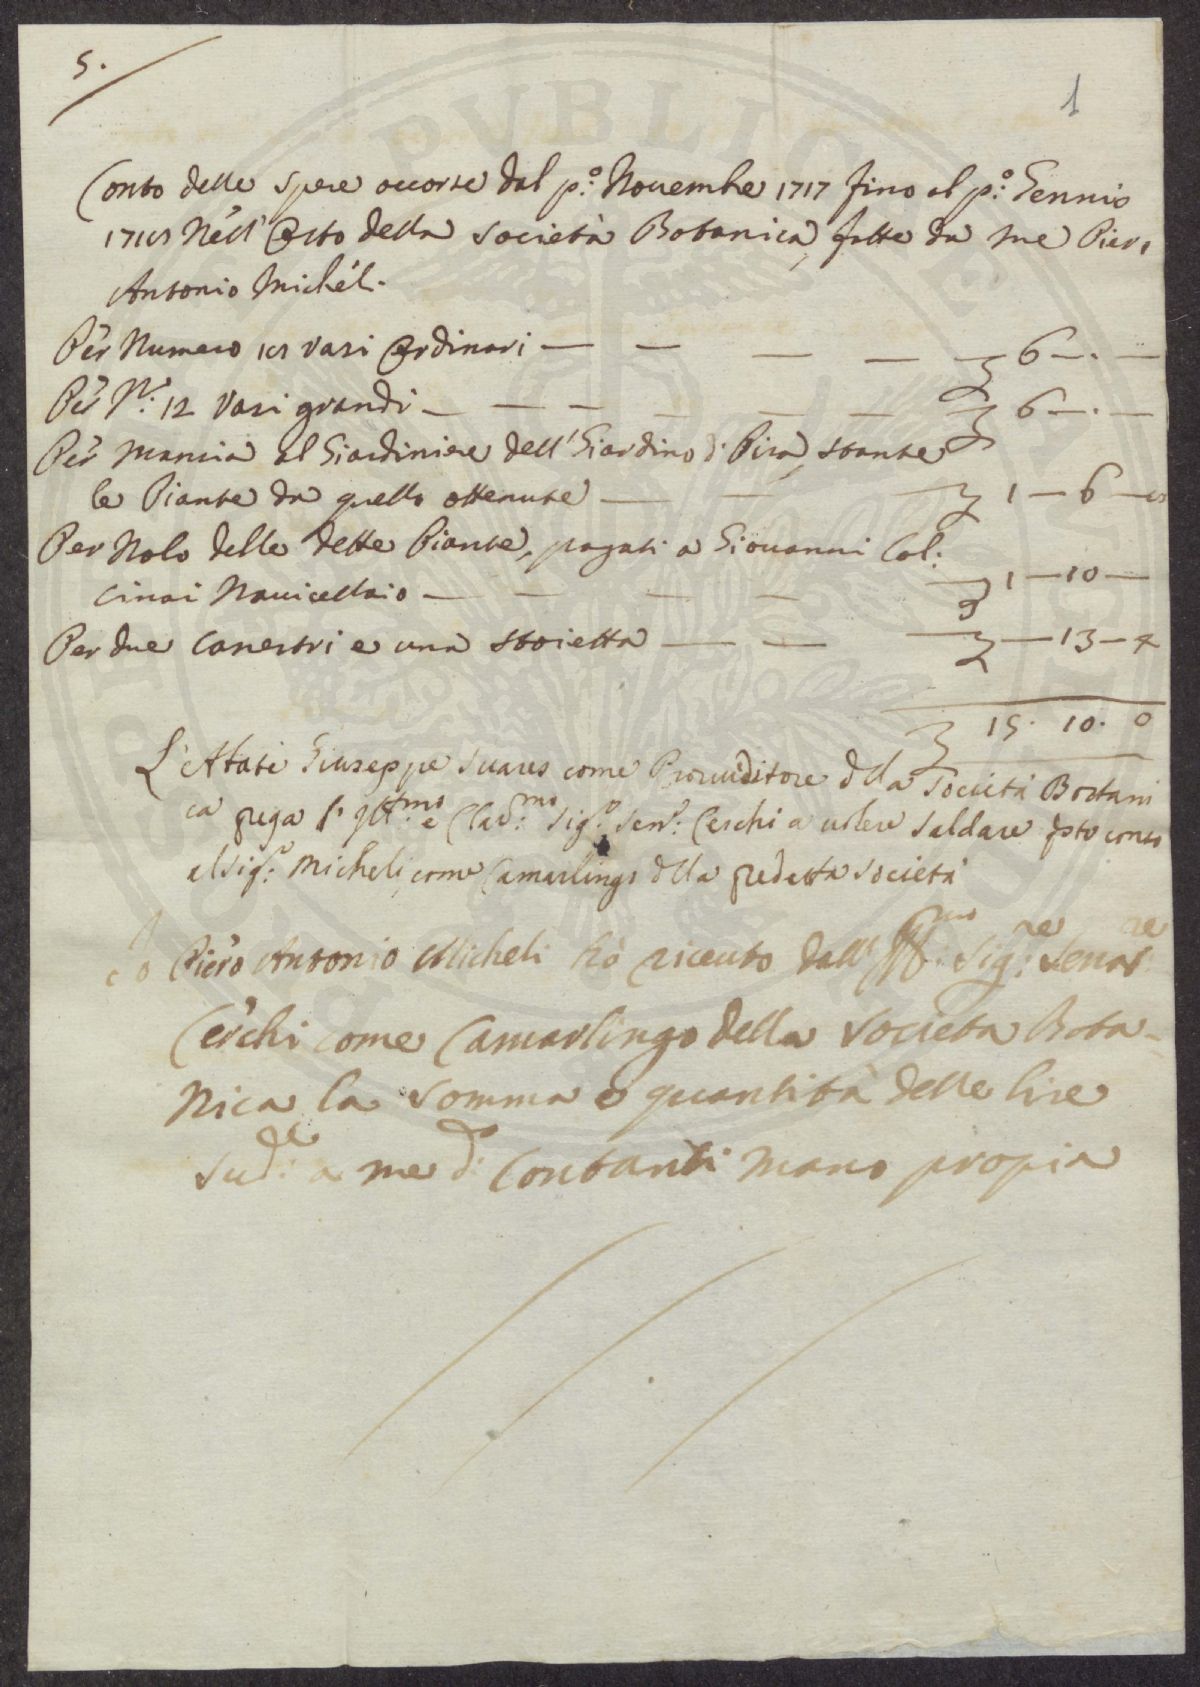 5.
1
Conto delle spese occorse dal p.º Nouembre 1717 fino al p.º Gennio
1718 Nell' Orto della Società Botanica, fatte da me Pier,
Antonio Michel.
Per Numero 18 vasi Ordinari — — — — 6 — . —
Per N.º: 12 vasi grandi — — — — — — 6 — . —
Per Mancia al Giardiniere dell' Giardino di Pisa, stante
le Piante da quello ottenute — — — 1 — 6 — 8
Per Nolo delle dette Piante, pagati a Giouanni Cal:
cinai Nauicellaio — — — — — 1 — 10 —
Per due canestri e una stoietta — — — — 13 — 4
15. 10. 0
L'Abate Giuseppe Suares come Proueditore dlla Società Bottani
ca prega l' Ill:mo e Clar:mo Sig:r Sen:r Cerchi a uolere saldare qsto conto
al sig:r Micheli, come Camarlingo dlla predetta società
Io Piero Antonio Micheli hò riceuto dall' Ill:mo Sig:re Senat:re
Cerchi come Camarlingo della Società Bota-
nica la somma e quantità delle lire
Sud:e a me d:o Contanti mano propia